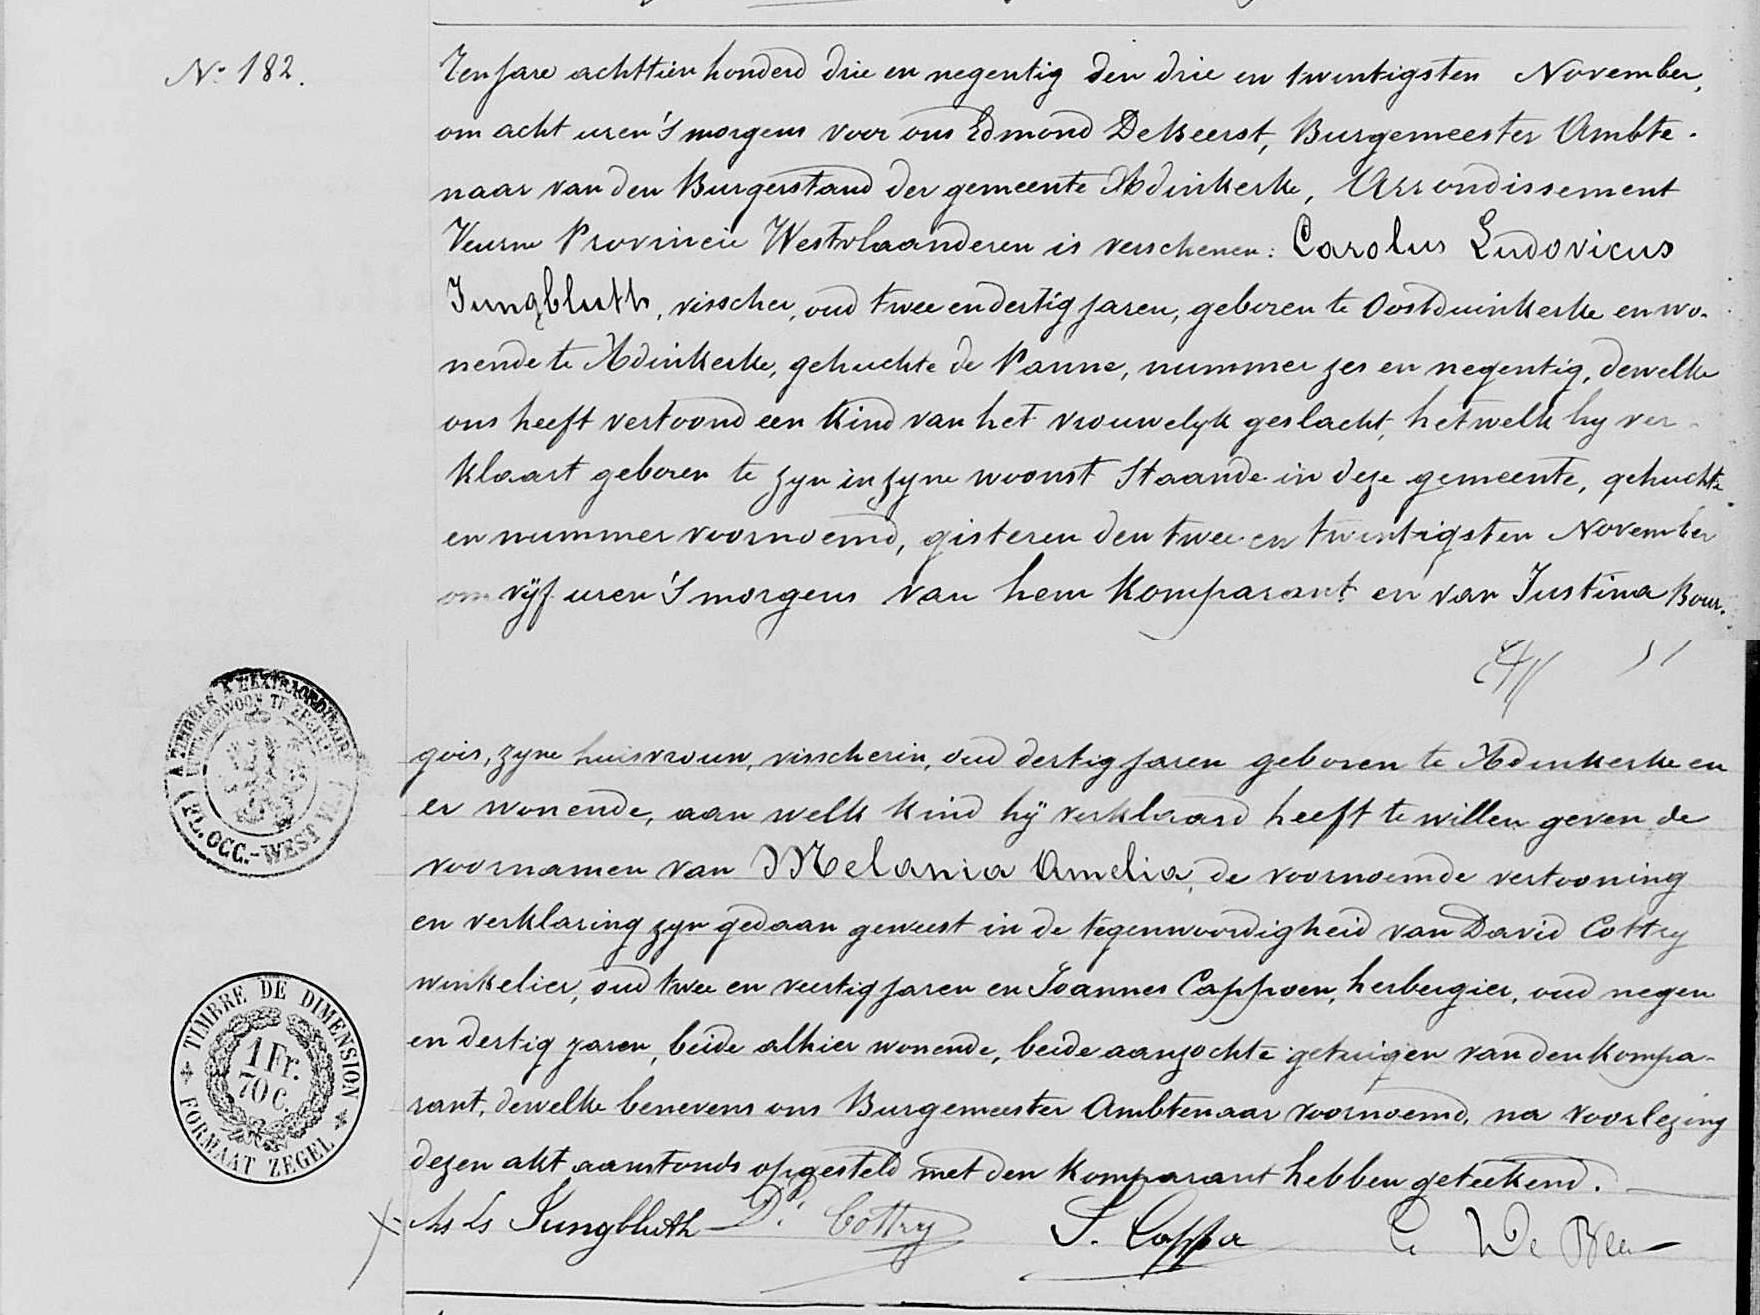 No 182.
Ten jare achttien honderd drie en negentig den drie en twintigsten November,
om acht uren 's morgens voor ons Edmond Debeerst, Burgemeester Ambte-
naar van den Burgerstand der gemeente Adinkerke, Arrondissement
Veurne Provincie Westvlaanderen is verschenen: Carolus Ludovicus
Jungbluth, visscher, oud twee en dertig jaren, geboren te Oostduinkerke en wo-
nende te Adinkerke, gehuchte de Panne, nummer zes en negentig, dewelke
ons heeft vertoond een kind van het vrouwelyk geslacht, hetwelk hy ver-
klaart geboren te zyn in zyne woonst staande in deze gemeente, gehuchte
en nummer voornoemd, gisteren den twee en twintigsten November
om vijf uren 's morgens van hem komparant en van Justina Bour-
gois, zyne huisvrouw, visscherin, oud dertig jaren geboren te Adinkerke en
er wonende, aan welk kind hij verklaard heeft te willen geven de
voornamen van Melania Amelia, de voornoemde vertooning
en verklaring zyn gedaan geweest in de tegenwoordigheid van David Cottry
winkelier, oud twee en veertig jaren en Joannes Cappoen, herbergier, oud negen
en dertig jaren, beide alhier wonende, beide aanzochte getuigen van den kompa-
rant, dewelke benevens ons Burgemeester Ambtenaar voornoemd, na voorlezing
dezen akt aanstonds opgesteld met den komparant hebben geteekend.
Chs Ls Jungbluth D. Cottry J. Cappo
A TIMBRER A L'EXTRAORDINAIRE
BUITENGEWOON TE ZEGELEN
FL. OCC.-WEST VL.
TIMBRE DE DIMENSION
1 Fr.
70 C.
FORMAAT ZEGEL